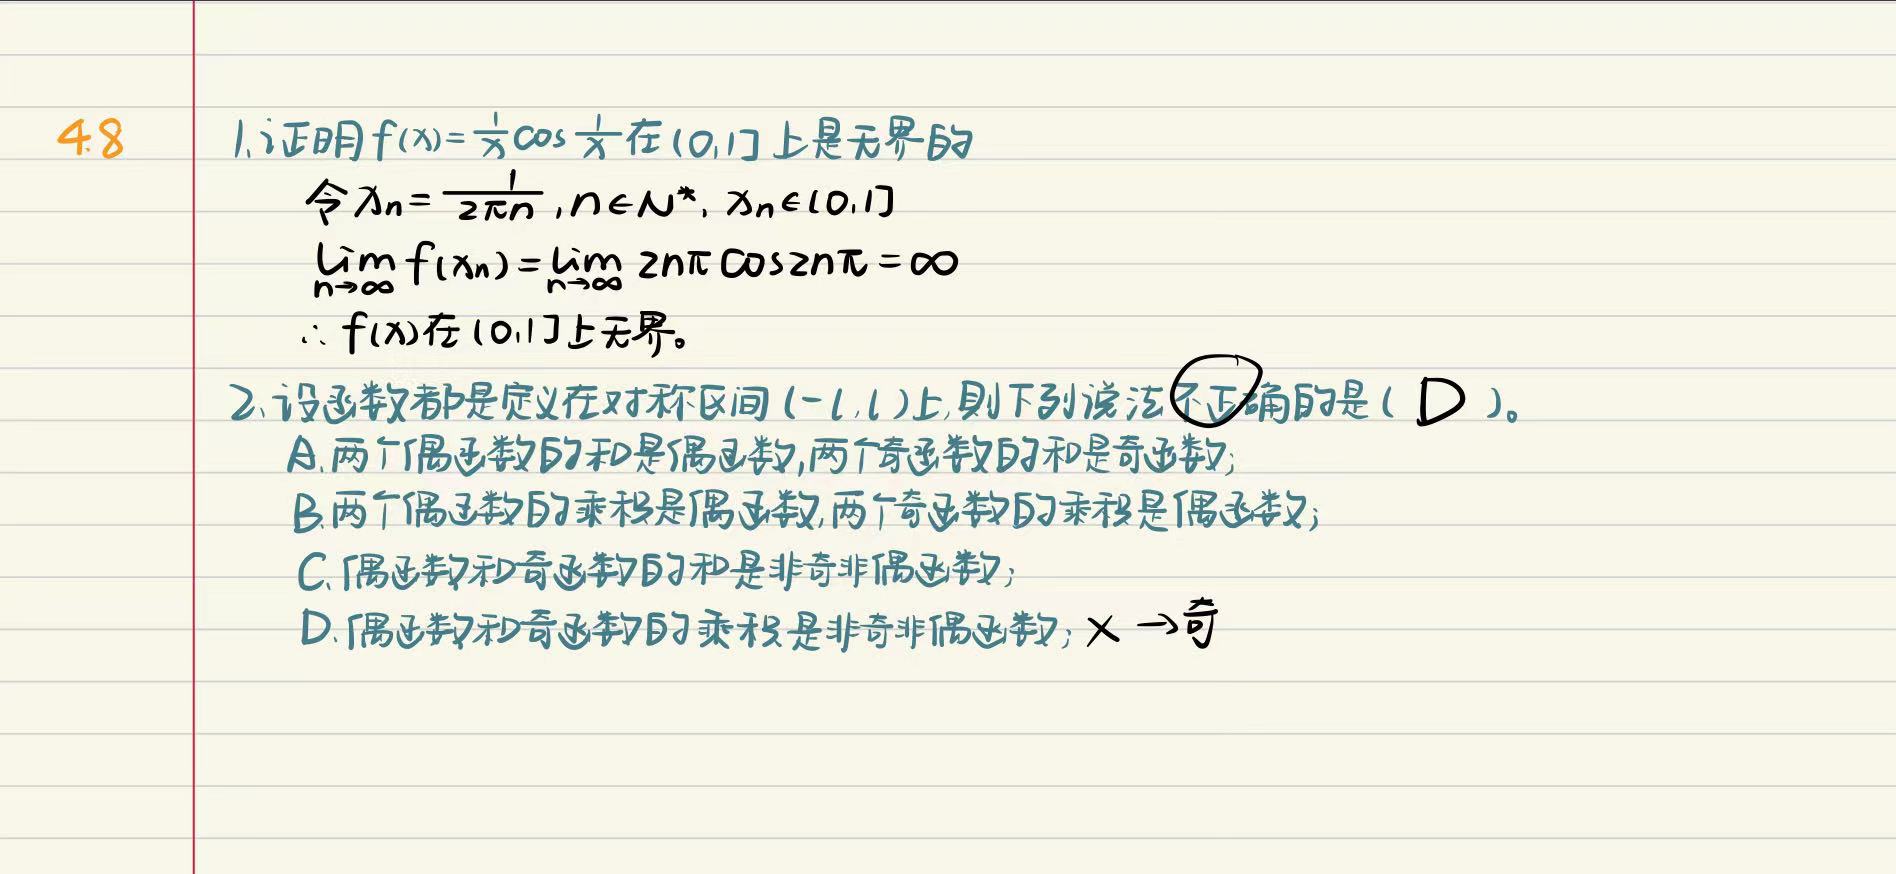 4.8
1.证明f(x)=1/x cos 1/x 在(0,1]上是无界的
令xn=1/2πn,n∈N*, xn∈(0,1]
lim n→∞ f(xn)=lim n→∞ 2nπcos2nπ=∞
∴f(x)在(0,1]上无界。
2.设函数都是定义在对称区间(-l,l)上,则下列说法不正确的是( D )。
A.两个偶函数的和是偶函数,两个奇函数的和是奇函数;
B.两个偶函数的乘积是偶函数,两个奇函数的乘积是偶函数;
C.偶函数和奇函数的和是非奇非偶函数;
D.偶函数和奇函数的乘积是非奇非偶函数; × →奇